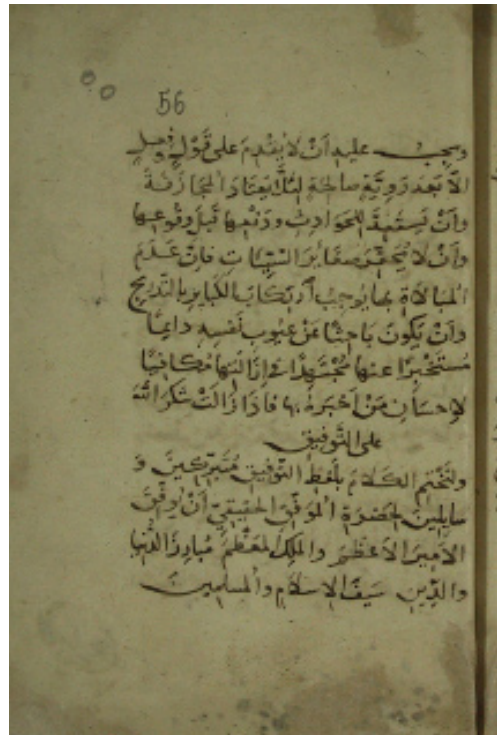 56
ويجب عليه أَنْ لا يُقْدِمَ على قَوْلٍ وفعلٍ
الّا بَعْدَ رَوِيَّةٍ صالحَةٍ لئلّا يَعْتادَ المجازَفَةَ
وأَنْ يَستَعِدَّ للحَوادِثِ ودَفْعِها قَبلَ وقُوعِها
وأَنْ لا يَحْتَقِرَ صغَايرَ السَّيِّئاتِ فانَّ عَدَمَ
المبَالاةِ بها يوجِبُ اُرْتكابَ الكبَايرِ بالتّدريج
وأَنْ يكونَ بَاحِثًا عَنْ عيُوبِ نَفسِهِ دايمًا
مُستَخْبِرًا عنها مُجْتَهِدًا في إزَالَتِها مُكافيًا
لإحسَانِ مَنْ اَخبَرَهُ بها فاذَا زَالَتْ شكرَ اللّهَ
على التَّوفيقِ
ولنَخْتِم الكلامَ بلَفظِ التّوفيقِ مُتَبَرِّكينَ وَ
سايلينَ لحضرَةِ المُوَفِّقِ الحقيقيّ أَنْ يُوفِّقَ
الأميرَ الأعظمَ والملِكَ المعَظَّمَ مُبارزَ الدُّنيا
والدِّينِ سَيفَ الاسلامِ والمسلمينَ